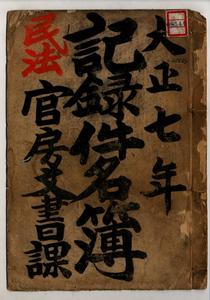 大正七年
記録件名簿
官房文書課
民法